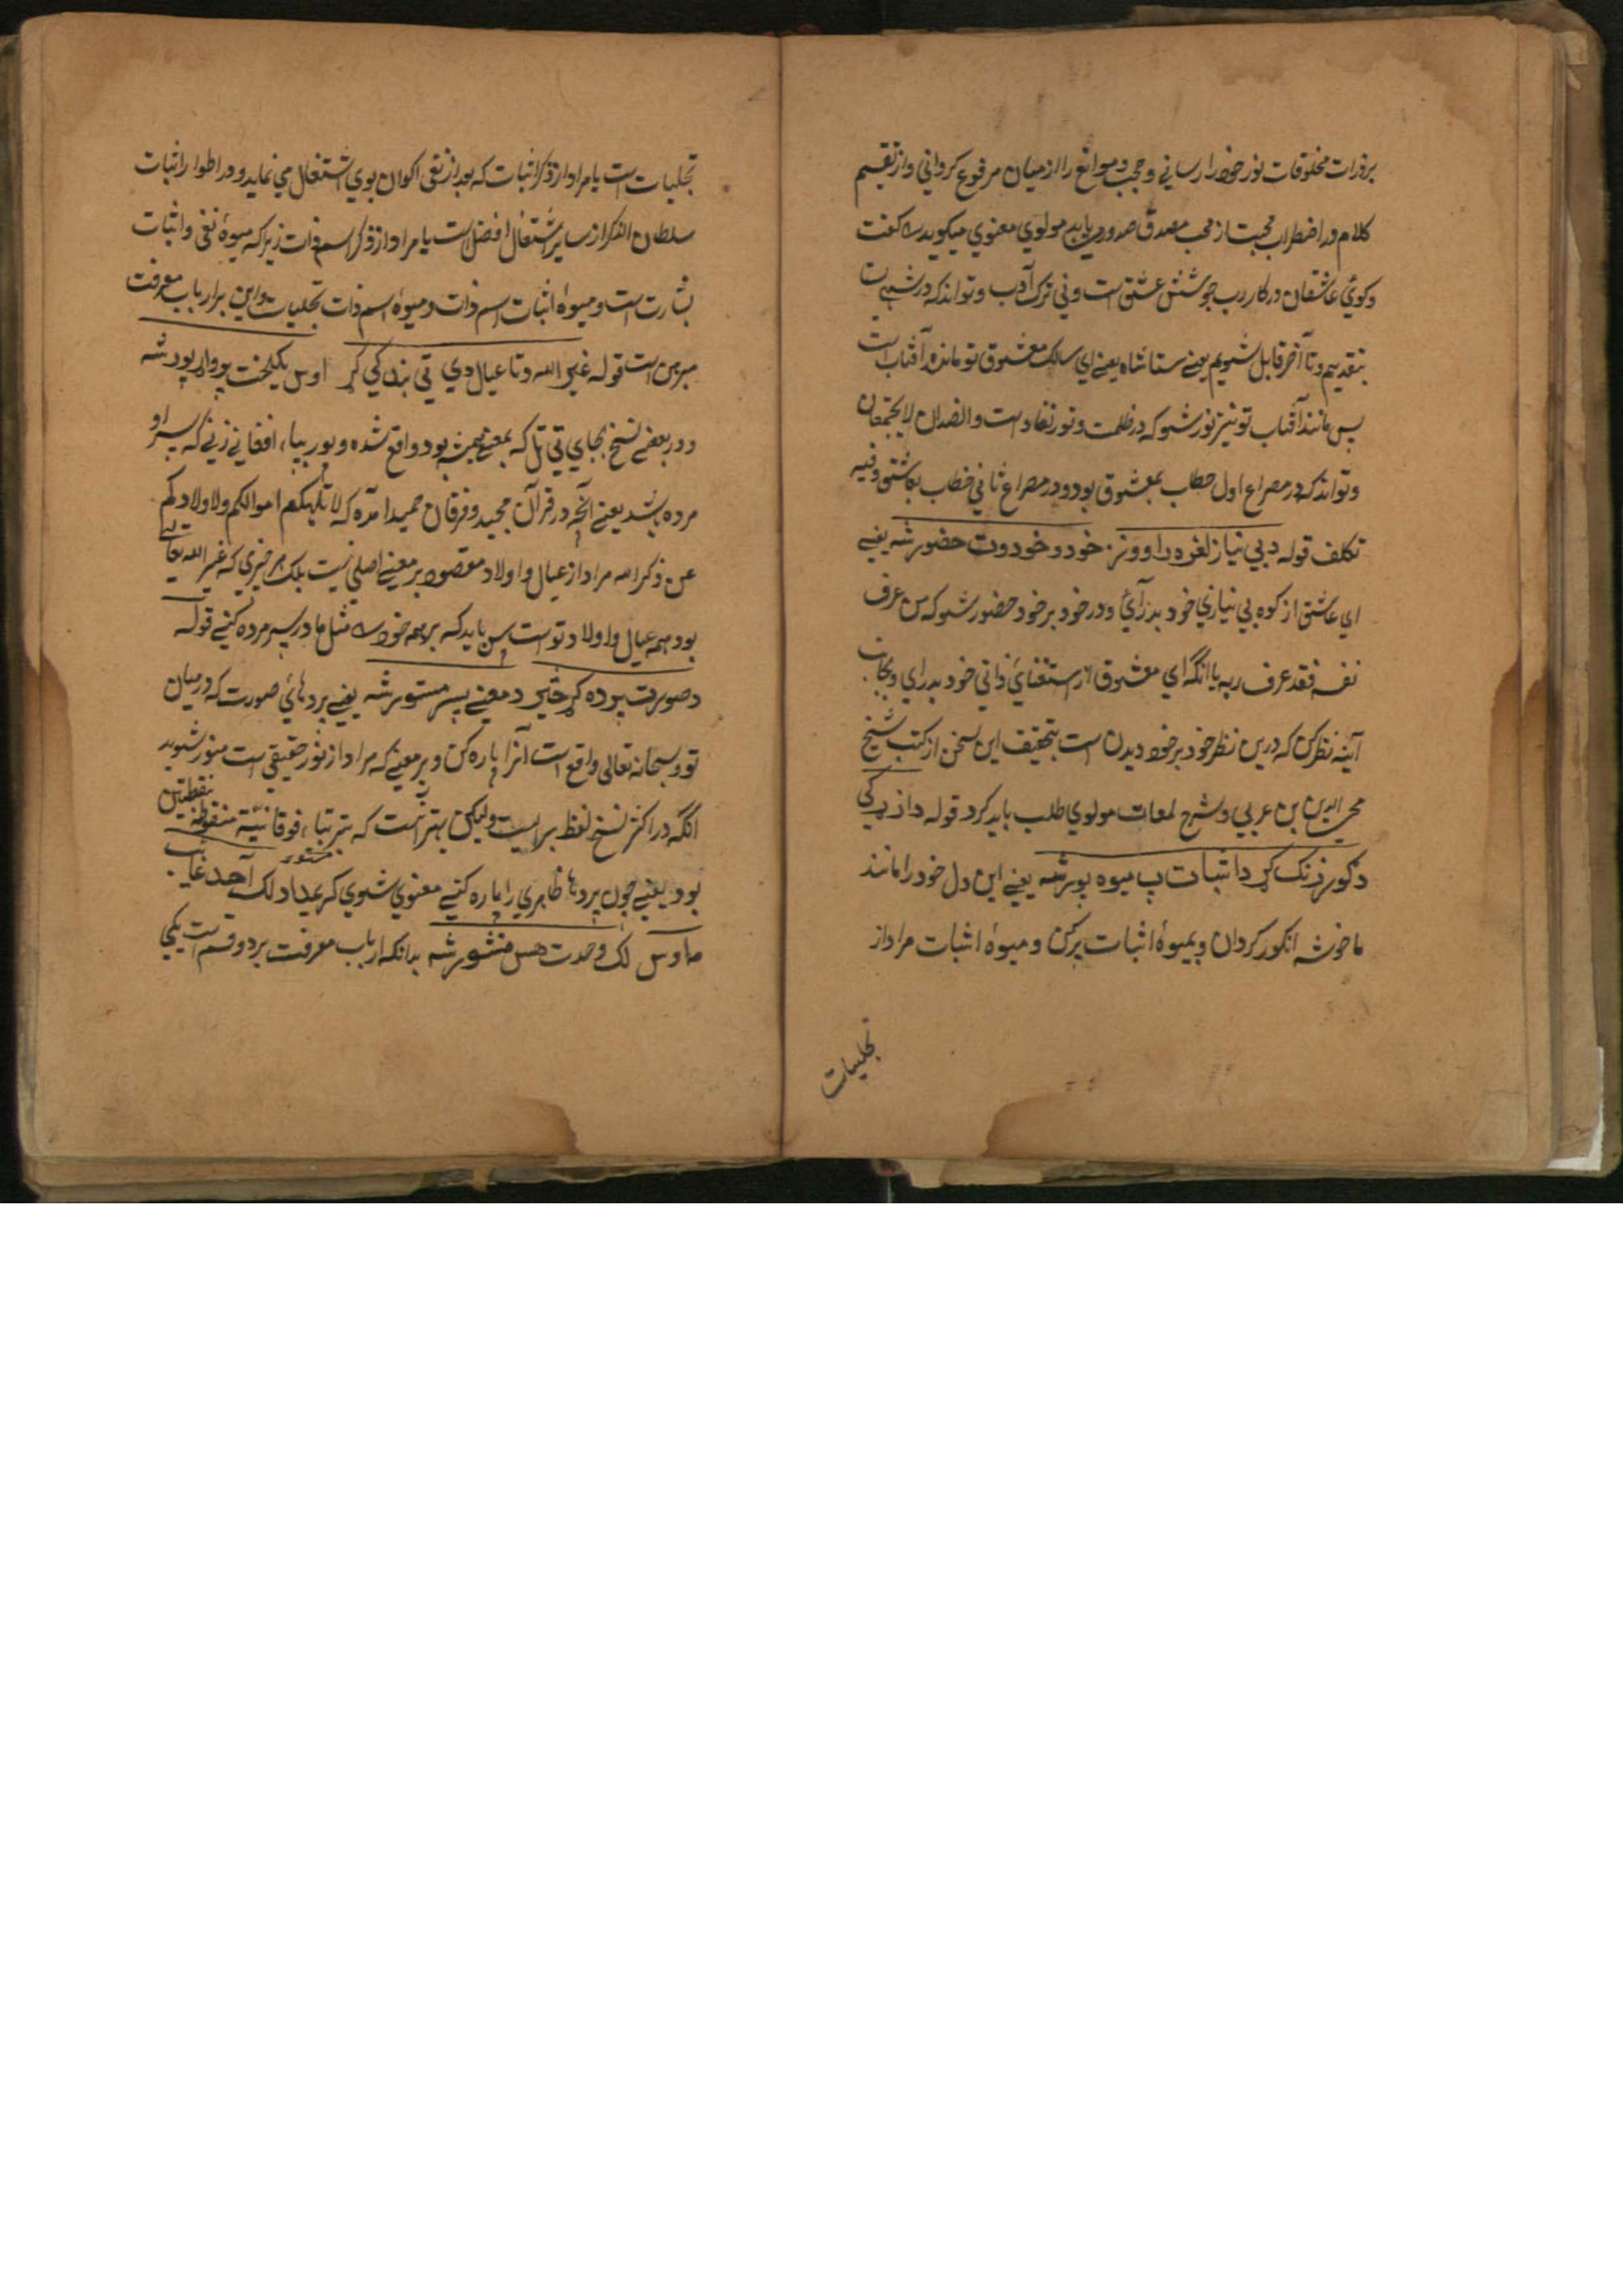 برذرات مخلوقات نور خود را رسانی و حجب و موانع را از میان مرفوع گردانی و از تقسیم
کلام در اضطراب محبت از محب مصدق صدور می یابد مولوي معنوي میکوید گفت
وکوئ عاشقان در کار رب جوشش عشق است و نی ترک ادب و تواند که در
بتقدیم و تا آخر قابل شویم یعنے ستا شاه یعنے اي سالک معشوق تو مانند آفتاب است
پس مانند آفتاب تو نیز نور شو که در ظلمت و نور تضاد است والضدان لا یجتمعان
و تواند که در مصراع اول خطاب بمعشوق بود و در مصراع ثاني خطاب بعاشق و فیه
تکلف قوله د بي نیاز لغره راووزه خود و خود وت حضور شه یعنے
اي عاشق از کوه بي نیازي خود بدر آئ و در خود بر خود حضور شو که من عرف
نفسه فقد عرف ربه یا آنکه اي معشوق از استغنائ ذاتي خود بدر اي و بجانب
آینه نظر کن که درین نظر خود بر خود دیدن است بتحقیق این سخن از کتب شیخ
محي الدین بن عربي و شرح لمعات مولوي طلب باید کرد قوله دا زړګی
د کور زنک کړ د اثبات پ میوه پور شه یعنے این دل خود را مانند
ما خوشه انکور کردان و بمیوهٔ اثبات پر کن و میوهٔ اثبات مراد از
تجلیات
تجلیات است یا مراد از ذکر اثبات که بعد از نفی اکوان بوي اشتغال مي نماید و در اطوار اثبات
سلطان الذکر از سایر اشتغال افضل است یا مراد از ذکر اسم ذات زیرا که میوهٔ نفی و اثبات
بشارت است و میوهٔ اثبات اسم ذات و میوهٔ اسم ذات تجلیات و این بر ارباب معرفت
مبرهن است قوله غیر الله دتا عیال دي تي بندکي کړ اوس یکلخت پر واړ پور شه
و در بعضے نسخ بجاي تي تل که بمعنے همیشه بود واقع شده و بور ببا، افغانے زنے که پسر او
مرده باشد یعنے آنچه در قرآن مجید و فرقان حمید آمده که لا تلهکم اموالکم ولا اولادکم
عن ذکر الله مراد از عیال و اولاد مقصود بر معنے اصلي نیست بلک هر چیزي که غیر الله تعالے
بود همه عیال و اولاد تو است پس باید که بر همه خود مثل مادر پسر مرده کنے قوله
د صورت پرده کړ څیر د معنے پسر مستور شه یعنے پرده هائ صورت که در میان
تو و سبحانه تعالی واقع است آنرا پاره کن و بر معنے که مراد از نور حقیقي است منور شوید
آنکه در اکثر نسخ لفظ بر است و لیکن بهتر آنست که ستر بتا، فوقانیة منقوطة بنقطتین
بود یعنے چون پرده ها ظاهري را پاره کنے معنوي مستور شوي کر عیاد لک احد غایب
ما وس لک وحدت هس منشور شه بدانکه ارباب معرفت بر دو قسم است یکي